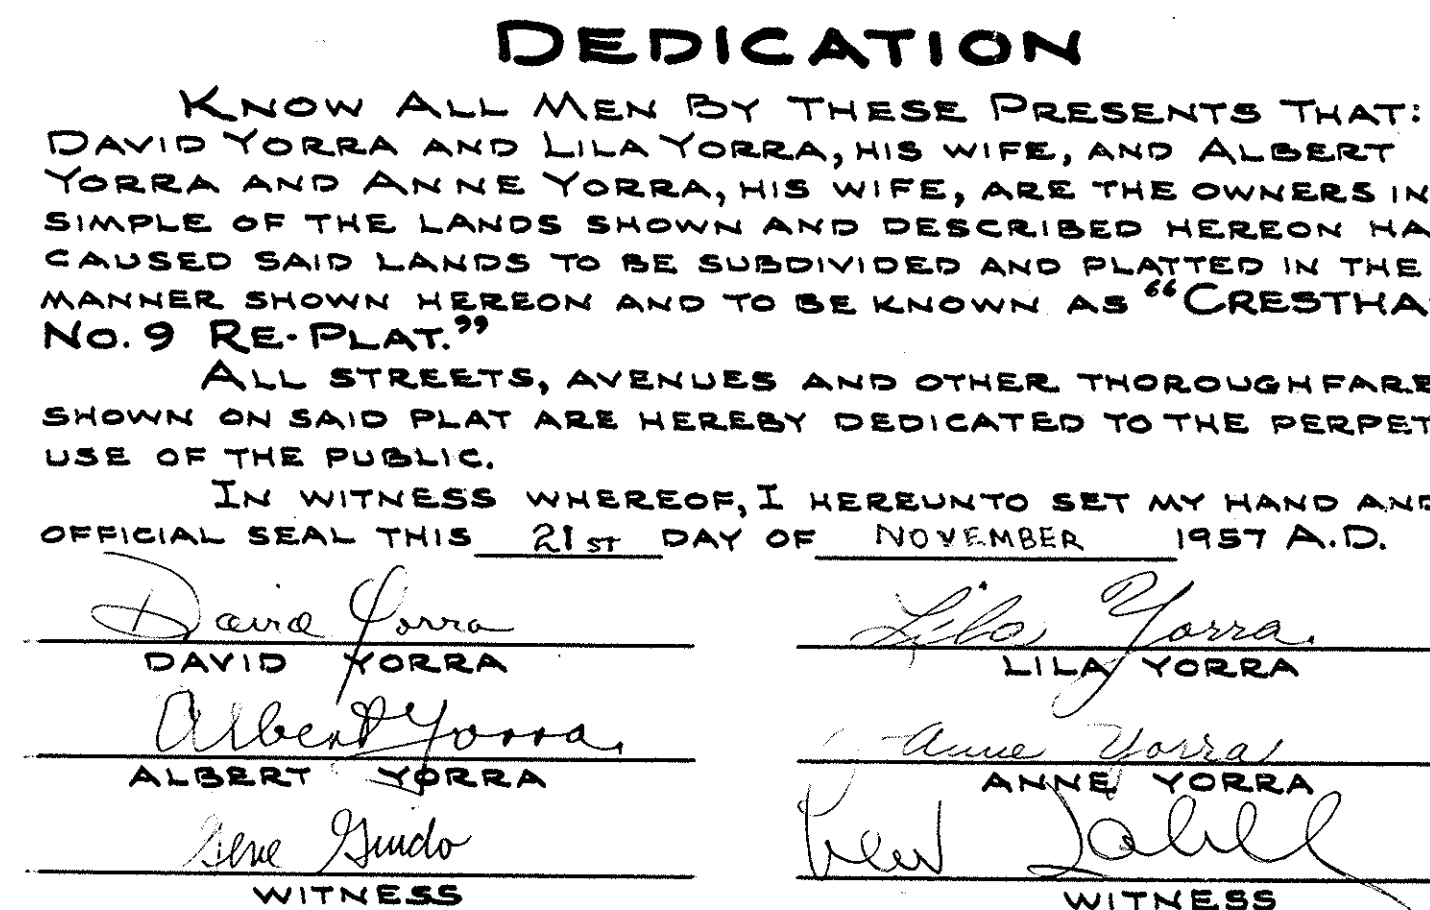 DEDICATION
KNOW ALL MEN BY THESE PRESENTS THAT:
DAVID YORRA AND LILA YORRA, HIS WIFE, AND ALBERT
YORRA AND ANNE YORRA, HIS WIFE, ARE THE OWNERS IN
SIMPLE OF THE LANDS SHOWN AND DESCRIBED HEREON HA
CAUSED SAID LANDS TO BE SUBDIVIDED AND PLATTED IN THE
MANNER SHOWN HEREON AND TO BE KNOWN AS “CRESTHA
NO. 9 RE-PLAT.”
ALL STREETS, AVENUES AND OTHER THOROUGHFARE
SHOWN ON SAID PLAT ARE HEREBY DEDICATED TO THE PERPET
USE OF THE PUBLIC.
IN WITNESS WHEREOF, I HEREUNTO SET MY HAND AND
OFFICIAL SEAL THIS 21ST DAY OF NOVEMBER 1957 A.D.
David Yorra Lila Yorra
DAVID YORRA LILA YORRA
Albert Yorra Anne Yorra
ALBERT YORRA ANNE YORRA
Gene Guido
WITNESS WITNESS